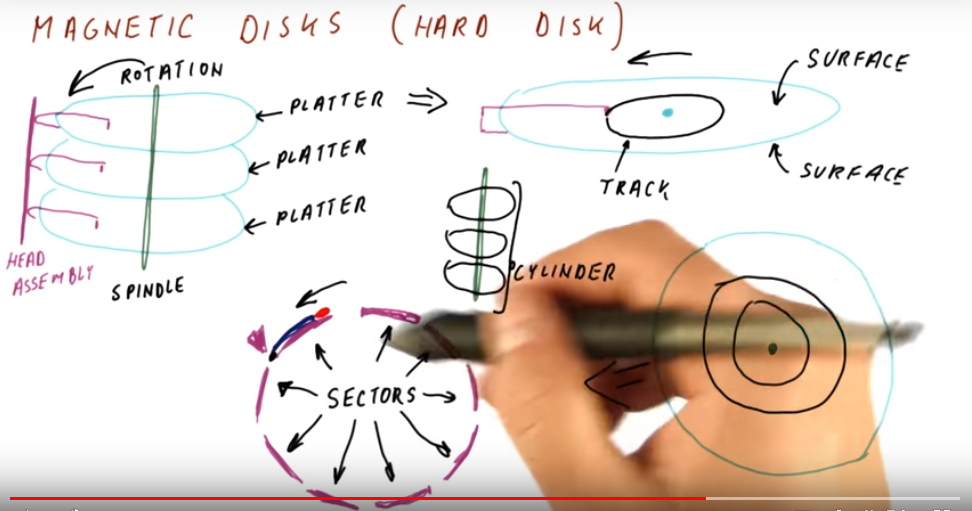 MAGNETIC DISKS (HARD DISK)
ROTATION
PLATTER
PLATTER
PLATTER
HEAD
ASSEMBLY
SPINDLE
SURFACE
TRACK
SURFACE
CYLINDER
SECTORS